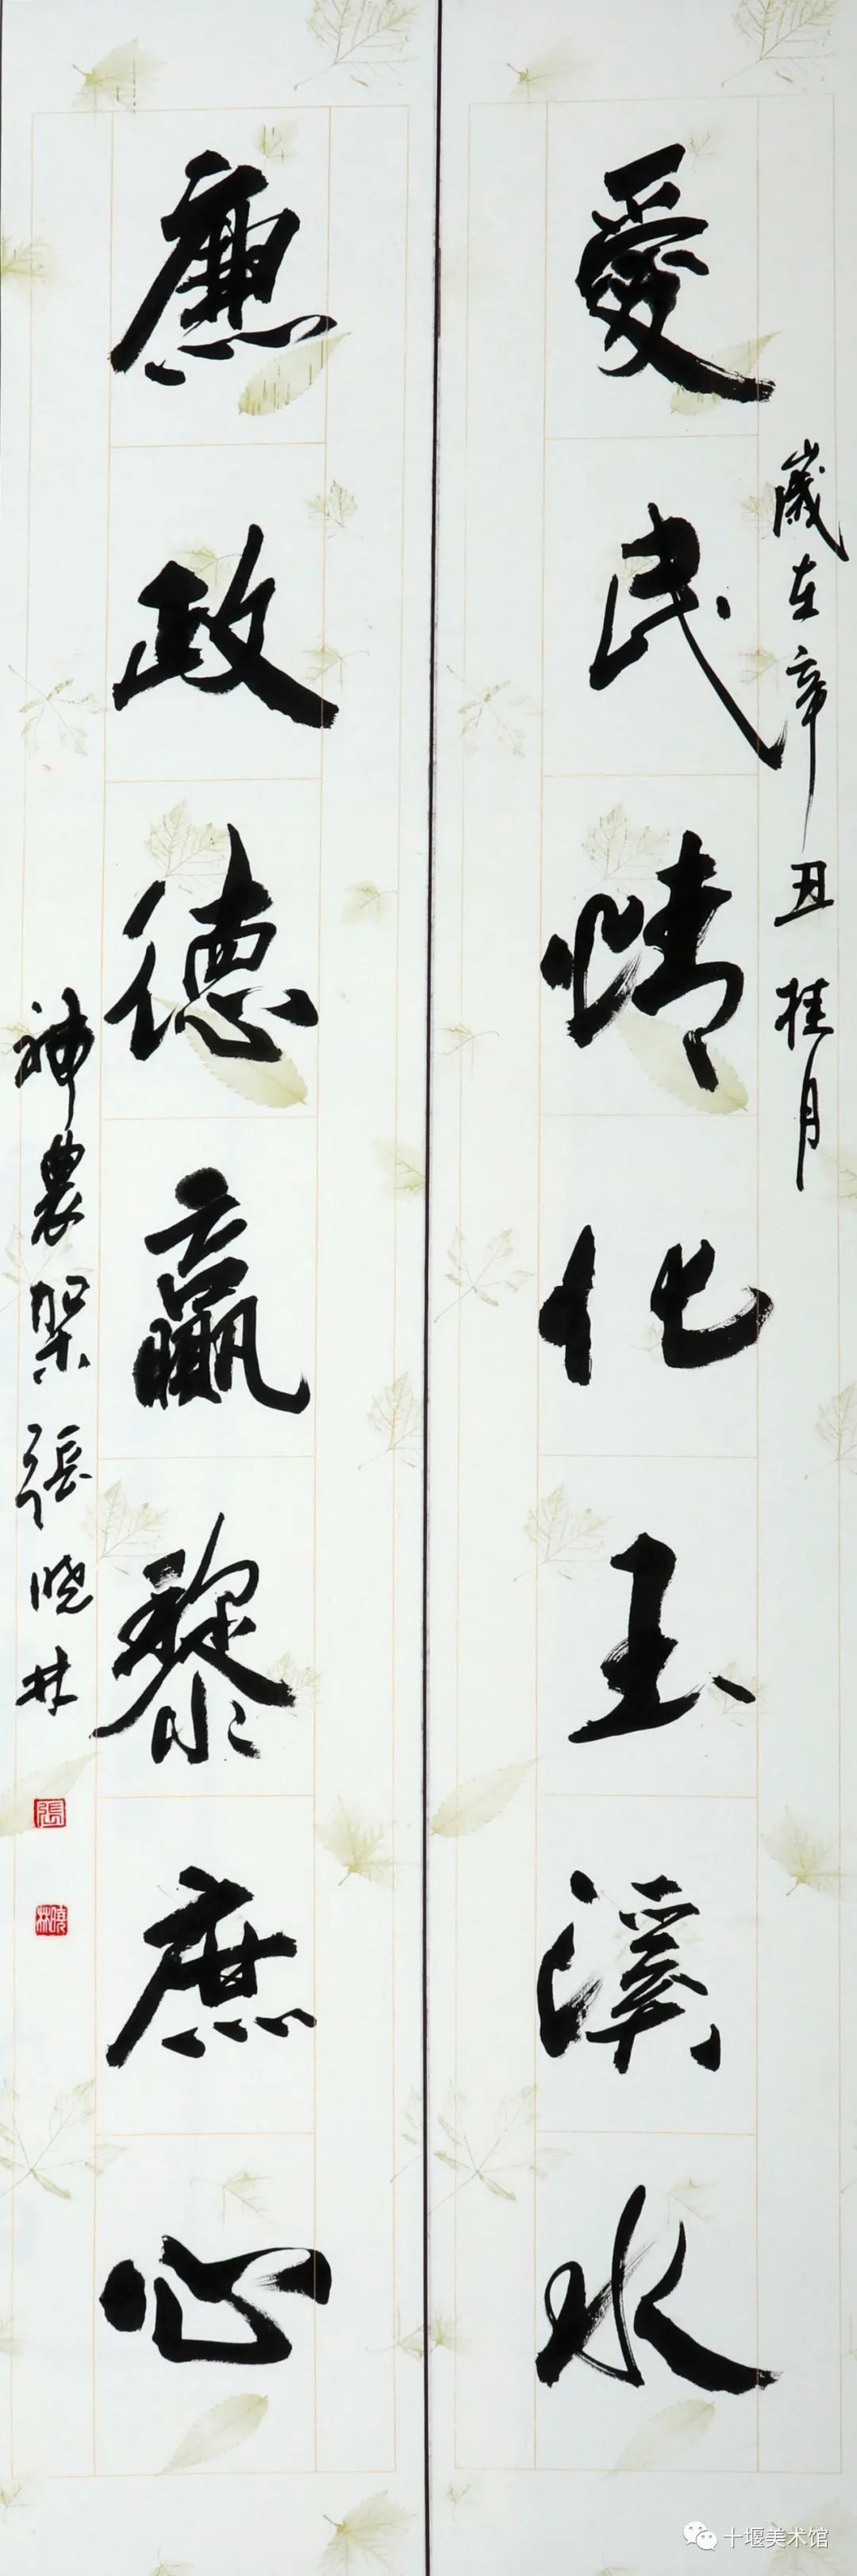 歲在辛丑桂月
愛民情化玉溪水
廉政德贏黎庶心
神農架張曉林
張
曉林
十堰美术馆